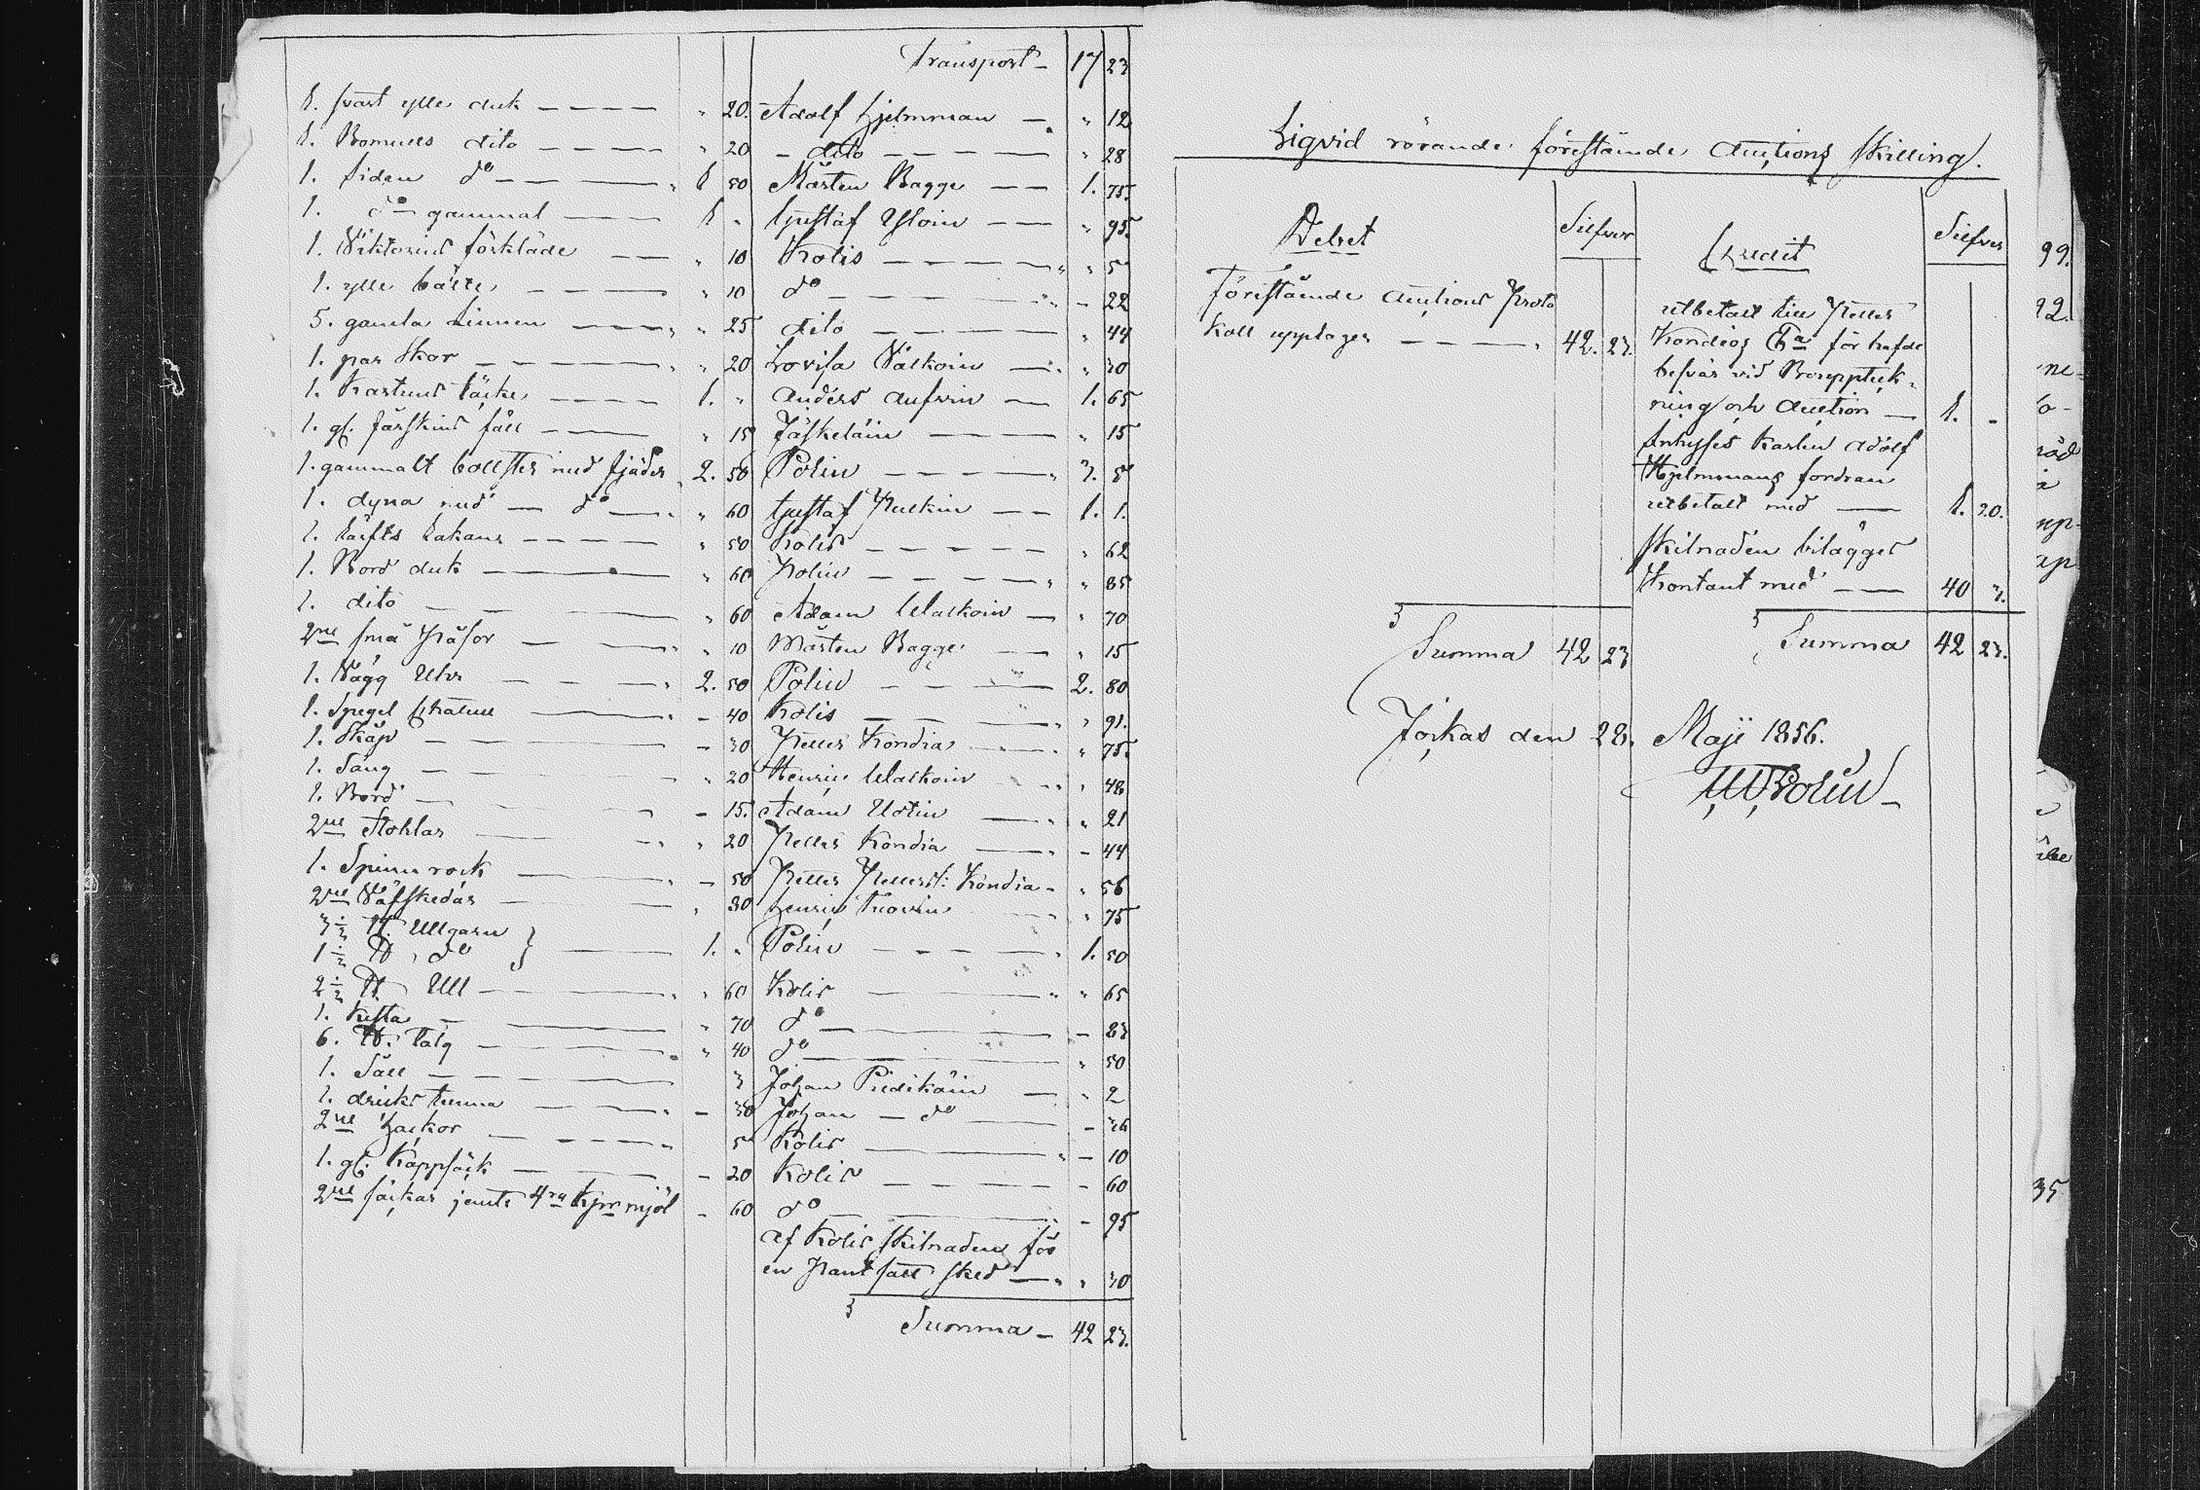 Transport - 17 23
1. svart ylle duk - - - - " 20. Adolf Hjelmman - " 12
1. Bomuls dito - - - - " 20 - dito - - - - " 28
1. siden do - - - - " 1 50 Mårten Bagge - - 1. 75.
1. do gammal - - 1 " Gustaf - " 95.
1. förkläde - - " 10 Kolis - - - - " " 5
1. ylle bälte - - - - " 10 do - - - - - 22
5. gamla Linnen - - - " " 25 dito - - - - " 44
1. par skor - - - - " " 20 Lovisa - " 30
1. täcke - - - - 1. " Anders - 1. 65
1. gl. fårskins fäll - - " 15 Jäskeläin - - - " 15
1. gammalt bollster med fjäder " 2. 50 Polin - - - - 3. 5
1. dyna med - do - " " 60 Gustaf - - 1. 1.
1. Lakans - - - - " 50 Kolis - - - - - " 62
1. Bord duk - - " 60 Polin - - - - " " 85
1. dito - - - " 60 Adam - " 70
2ne små - - - " " 10 Mårten Bagge - - " 15
1. Vägg Uhr - - - " 2. 50 Polin - - - 2. 80
1. Spegel - - " - 40 Kolis - - - " " 91.
1. Skåp - - - 30 Petter Kondia - - - " 75.
1. Säng - - - " " 20 Henric - " 48
1. Bord - - - - 15. Adam - - " " 21
2ne Stohlar - - - " " 20 Petter Kondia - - " - 44
1. Spinn rock - - " - 50 Petter Petterss: Kondia - " 56
2ne Väfskedar - - - " 30 Henric - - " 75
3 1/2 ℔. Ullgarn }
1 1/2 ℔. do } - - 1. " Polin - - - - " 1. 50
2 1/2 ℔ Ull - - - " " 60 Kolis - - - " " 65
1. Kista - - - " 70 do - - - - 83
6. ℔. Talg - - - " " 40 do - - - " 50
1. Såll - - - - 3 Johan - - " 2
1. dricks tunna - - - " - 30 Johan - do - - 36
2ne hackor - - - - " 5 Kolis - - - " - 10
1. gl. Kappsäck - - - - 20 Kolis - - - - - 60
2ne säckar jemte 4ra mjöl - 60 do - - - - 95
af Kolis skilnaden för
en sked - " " 30
Summa - 42 23.
Liqvid rörande förestående Auctions Skilling.
Debet Silfver Credit Silfver
Förestående Auctions Proto
koll upptager - - - - " 42. 23.
utbetalt till Petter
Kondias för hafde
besvär vid Boupptek-
ning och Auction - 1. -
Inhyses Karlen Adolf
Hjelmmans fordran
utbetalt med - 1. 20.
Skilnaden bilägges
Kontant med - - 40 3.
Summa 42 23 Summa 42 23.
Jockas den 28. Maji 1856.
Polin
99.
92.
35